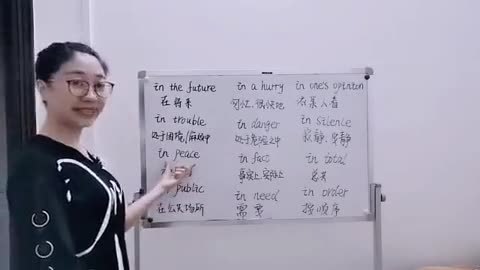 in the future in a hurry in one's opinion
在将来 匆忙,很快地 在某人看
in trouble in danger in silence
处于困境/麻烦中 处于危险之中 寂静,安静
in peace in fact in total
事实上,实际上 总共
public in need in order
在公共场所 需要 按顺序